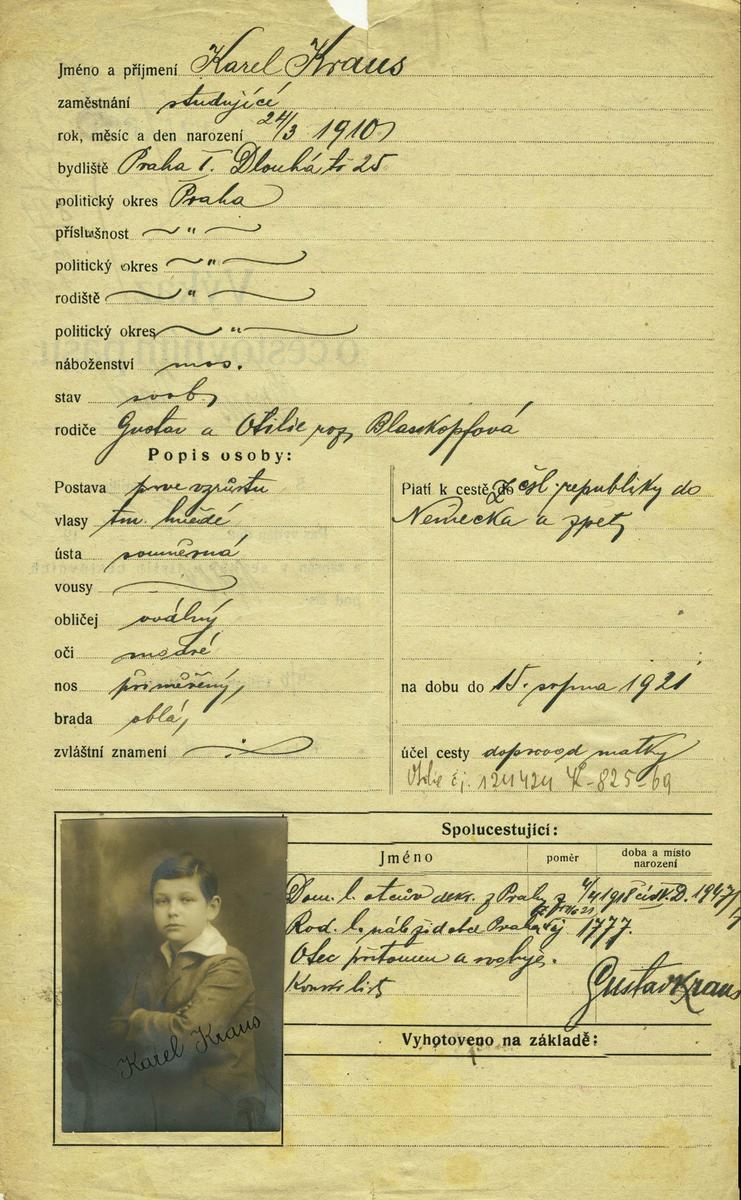 Jméno a příjmení Karel Kraus
zaměstnání studující
rok, měsíc a den narození 24/3 1910
bydliště Praha I. Dlouhá tř 25
politický okres Praha
příslušnost "
politický okres "
rodiště "
politický okres "
náboženství mos.
stav svob
rodiče Gustav a Otilie roz Blaukopfová
Popis osoby:
Postava prve vzrůstu
vlasy tm. hnědé
ústa souměrná
vousy
obličej oválný
oči modré
nos přiměřený
brada oblá
zvláštní znamení
Platí k cestě do Z čsl. republiky do
Německa a zpět
na dobu do 15. srpna 1921
účel cesty doprovod matky
Otilie čj. 124424 K-825-69
Spolucestující:
Jméno poměr doba a místo narození
Dom. l. otcův dekr. z Prahy z 4/4 1918 D. 1947/
Rod. l. náb. žid obce Praha čj 1777.
Otec přítomen a svoluje.
Konskr list
Gustav Kraus
Vyhotoveno na základě:
Karel Kraus